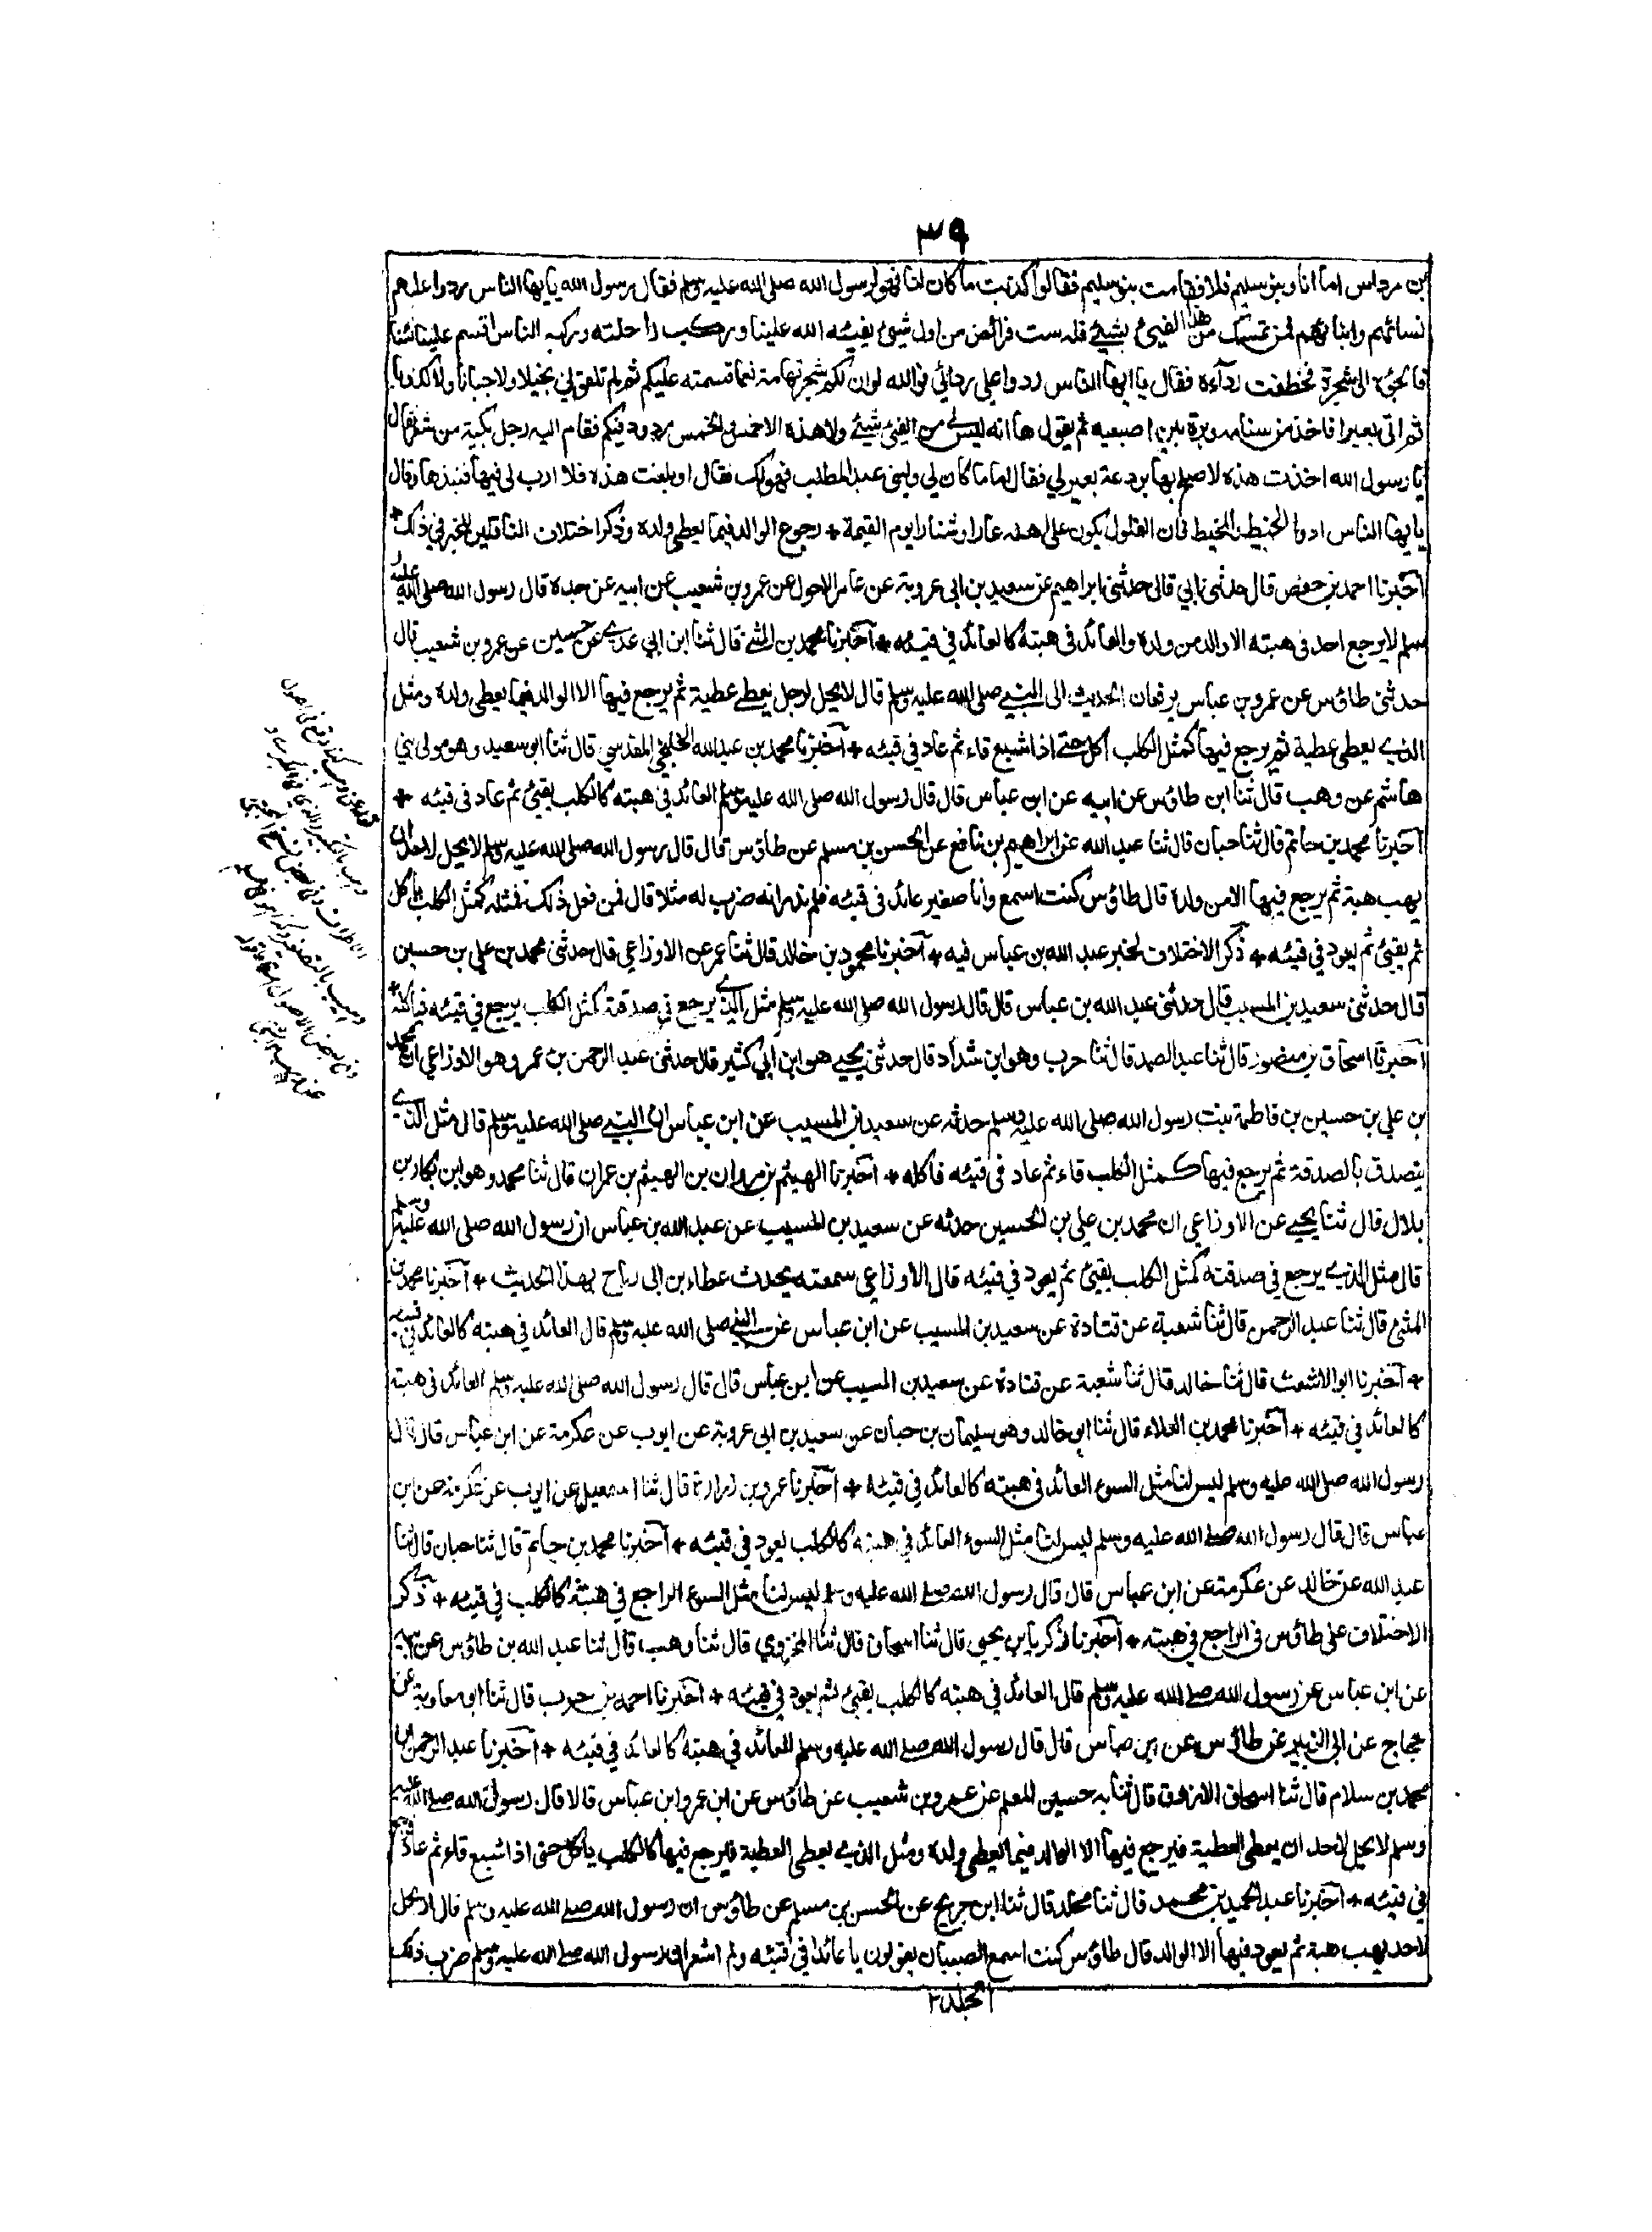 ٣٩
بن مرداس اما انا وبنو سليم فلا فقامت بنو سليم فقالوا كذبت ما كان لنا فهو لرسول الله صلى الله عليه وسلم فقال رسول الله يا يها الناس ردوا عليهم
نسائهم وابنائهم فمن تمسك من هذا الفيئ بشيئ فله ست فرائض من اول شيئ يفيئه الله علينا وركب راحلته وركبه الناس اقسم علينا فيئنا
فالجؤه الى شجرة فخطفت رداءه فقال يا ايها الناس ردوا علي ردائي فوالله لو ان لكم شجر تهامة نعما قسمته عليكم ثم لم تلقوني بخيلا ولا جبانا ولا كذوبا
ثم اتى بعيرا فاخذ من سنامه وبرة بين اصبعيه ثم يقول ها انه ليس لي من الفيئ شيئ ولا هذه الا خمس والخمس مردود فيكم فقام اليه رجل بكبة من شعر فقال
يا رسول الله اخذت هذه لا صلح بها بردعة بعير لي فقال اما ما كان لي ولبني عبد المطلب فهو لك فقال او بلغت هذه فلا ارب لي فيها فنبذها وقال
يا يها الناس ادوا الخيط والمخيط فان الغلول يكون على اهله عارا وشنارا يوم القيمة + رجوع الوالد فيما يعطي ولده وذكر اختلاف الناقلين للخبر في ذلك +
اخبرنا احمد بن حفص قال حدثني ابي قال حدثني ابراهيم عن سعيد بن ابي عروبة عن عامر الاحول عن عمرو بن شعيب عن ابيه عن جده قال رسول الله صلى الله عليه و
سلم لا يرجع احد في هبته الا والد من ولده والعائد في هبته كالعائد في قيئه + اخبرنا محمد بن المثنى قال ثنا ابن ابي عدي عن حسين عن عمرو بن شعيب قال
حدثني طاؤس عن عمرو بن عباس يرفعان الحديث الى النبي صلى الله عليه وسلم قال لا يحل لرجل يعطي عطية ثم يرجع فيها الا الوالد فيما يعطي ولده ومثل
الذي يعطي عطية ثم يرجع فيها كمثل الكلب اكل حتى اذا شبع قاء ثم عاد في قيئه + اخبرنا محمد بن عبد الله الخلنجي المقدسي قال ثنا ابو سعيد وهو مولى بني
هاشم عن وهب قال ثنا ابن طاؤس عن ابيه عن ابن عباس قال قال رسول الله صلى الله عليه وسلم العائد في هبته كالكلب يقيئ ثم عاد في قيئه +
اخبرنا محمد بن حاتم قال ثنا حبان قال ثنا عبد الله عن ابراهيم بن نافع عن الحسن بن مسلم عن طاؤس قال قال رسول الله صلى الله عليه وسلم لا يحل لاحد ان
يهب هبة ثم يرجع فيها الا من ولده قال طاؤس كنت اسمع وانا صغير عائد في قيئه فلم ندر انه ضرب له مثلا قال فمن فعل ذلك فمثله كمثل الكلب ياكل
ثم يقيئ ثم يعود في قيئه + ذكر الاختلاف لخبر عبد الله بن عباس فيه + اخبرنا محمود بن خالد قال ثنا عمر عن الاوزاعي قال حدثني محمد بن علي بن حسين
قال حدثني سعيد بن المسيب قال حدثني عبد الله بن عباس قال قال رسول الله صلى الله عليه وسلم مثل الذي يرجع في صدقته كمثل الكلب يرجع في قيئه فياكله +
اخبرنا اسحاق بن منصور قال ثنا عبد الصمد قال ثنا حرب وهو ابن شداد قال حدثني يحيى هو ابن ابي كثير قال حدثني عبد الرحمن بن عمرو هو الاوزاعي ان محمد
بن علي بن حسين بن فاطمة بنت رسول الله صلى الله عليه وسلم حدثه عن سعيد بن المسيب عن ابن عباس ان النبي صلى الله عليه وسلم قال مثل الذي
يتصدق بالصدقة ثم يرجع فيها كمثل الكلب قاء ثم عاد في قيئه فاكله + اخبرنا الهيثم بن مروان بن الهيثم بن عمران قال ثنا محمد وهو ابن بكار بن
بلال قال ثنا يحيى عن الاوزاعي ان محمد بن علي بن الحسين حدثه عن سعيد بن المسيب عن عبد الله بن عباس ان رسول الله صلى الله عليه وسلم
قال مثل الذي يرجع في صدقته كمثل الكلب يقيئ ثم يعود في قيئه قال الاوزاعي سمعته يحدث عطاء بن ابي رباح بهذا الحديث + اخبرنا محمد بن
المثنى قال ثنا عبد الرحمن قال ثنا شعبة عن قتادة عن سعيد بن المسيب عن ابن عباس عن النبي صلى الله عليه وسلم قال العائد في هبته كالعائد في قيئه
+ اخبرنا ابو الاشعث قال ثنا خالد قال ثنا شعبة عن قتادة عن سعيد بن المسيب عن ابن عباس قال قال رسول الله صلى الله عليه وسلم العائد في هبته
كالعائد في قيئه + اخبرنا محمد بن العلاء قال ثنا ابو خالد وهو سليمان بن حبان عن سعيد بن ابي عروبة عن ايوب عن عكرمة عن ابن عباس قال قال
رسول الله صلى الله عليه وسلم ليس لنا مثل السوء العائد في هبته كالعائد في قيئه + اخبرنا عمرو بن زرارة قال ثنا اسمعيل عن ايوب عن عكرمة عن ابن
عباس قال قال رسول الله صلى الله عليه وسلم ليس لنا مثل السوء العائد في هبته كالكلب يعود في قيئه + اخبرنا محمد بن حاتم قال ثنا حبان قال ثنا
عبد الله عن خالد عن عكرمة عن ابن عباس قال قال رسول الله صلى الله عليه وسلم ليس لنا مثل السوء الراجع في هبته كالكلب في قيئه + ذكر
الاختلاف على طاؤس في الراجع في هبته + اخبرنا زكريا بن يحيى قال ثنا اسحاق قال ثنا المخزومي قال ثنا وهب قال ثنا عبد الله بن طاؤس عن ابيه
عن ابن عباس عن رسول الله صلى الله عليه وسلم قال العائد في هبته كالكلب يقيئ ثم يعود في قيئه + اخبرنا احمد بن حرب قال ثنا ابو معاوية عن
حجاج عن ابي الزبير عن طاؤس عن ابن عباس قال قال رسول الله صلى الله عليه وسلم العائد في هبته كالعائد في قيئه + اخبرنا عبد الرحمن بن
محمد بن سلام قال ثنا اسحاق الازرق قال ثنا به حسين المعلم عن عمرو بن شعيب عن طاؤس عن ابن عمر وابن عباس قالا قال رسول الله صلى الله عليه
وسلم لا يحل لاحد ان يعطي العطية فيرجع فيها الا الوالد فيما يعطي ولده ومثل الذي يعطي العطية فيرجع فيها كالكلب ياكل حتى اذا شبع قاء ثم عاد فرجع
في قيئه + اخبرنا عبد الحميد بن محمد قال ثنا مخلد قال ثنا ابن جريج عن الحسن بن مسلم عن طاؤس ان رسول الله صلى الله عليه وسلم قال لا يحل
لاحد يهب هبة ثم يعود فيها الا الوالد قال طاؤس كنت اسمع الصبيان يقولون يا عائدا في قيئه ولم اشعر ان رسول الله صلى الله عليه وسلم ضرب ذلك
المجلد ٢